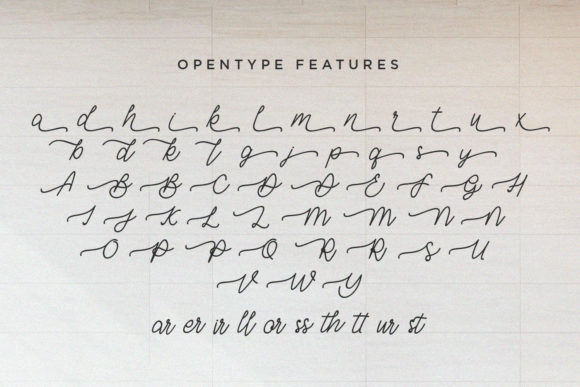 OPENTYPE FEATURES
a d h i k l m n r t u x
b d k l g j p q s y
A B B C D D E F G H
I J K L L M M N N
O P P Q R R S U
V W Y
ar er ir ll or ss th tt ur st